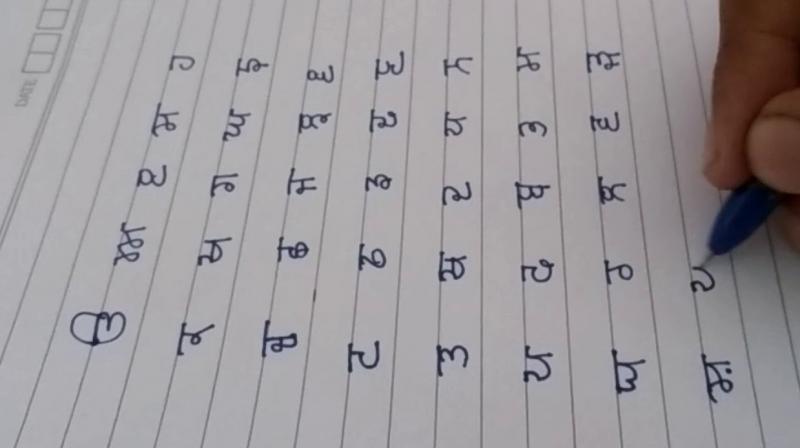 ੳ ਅ ੲ ਸ ਹ
ਕ ਖ ਗ ਘ ਙ
ਚ ਛ ਜ ਝ ਞ
ਟ ਠ ਡ ਢ ਣ
ਤ ਥ ਦ ਧ ਨ
ਪ ਫ ਬ ਭ ਮ
ਯ ਰ ਲ ਵ ੜ
ਸ਼
DATE